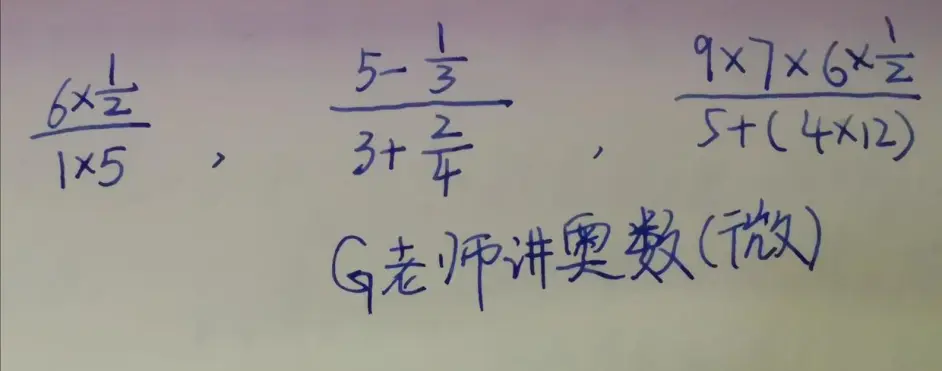 \frac{6×\frac{1}{2}}{1×5} , \frac{5-\frac{1}{3}}{3+\frac{2}{4}} , \frac{9×7×6×\frac{1}{2}}{5+(4×12)}
G老师讲奥数(微)